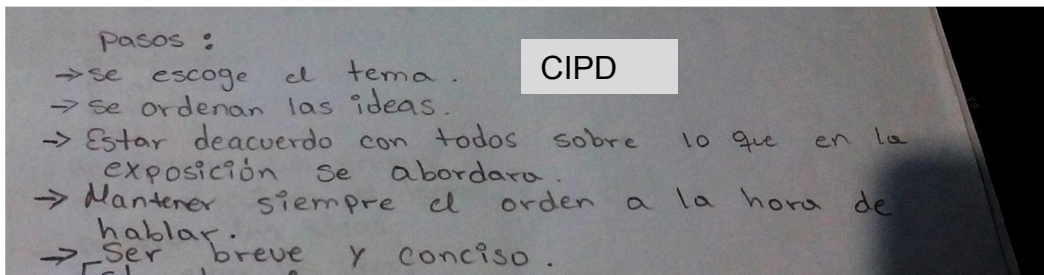 Pasos :
→ se escoge el tema.
CIPD
→ se ordenan las ideas.
→ Estar deacuerdo con todos sobre lo que en la
exposición se abordara.
→ Mantener siempre el orden a la hora de
hablar.
→ Ser breve y conciso.